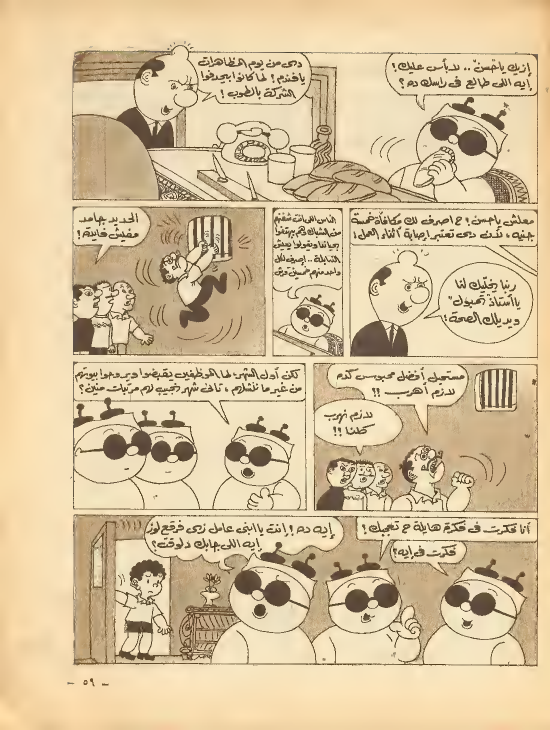 إزيك ياحسن .. لا بأس عليك !
إيه اللى طالع فى راسك ده ؟
دى من يوم المظاهرات
يافندم ! لما كانوا بيحدفوا
الشركة بالطوب !
معلش ياحسن ! ح اصرف لك مكافأة خمسة
جنيه ، لأن دى تعتبر إصابة أثناء العمل !
ربنا يخليك لنا
يا أستاذ
ويديك الصحة !
الناس اللى انت شفتهم
من الشباك هم بيهتفوا
بحياتنا وبيقولوا يعيش
.. اصرف لكل
واحد منهم خمسين قرش
الحديد جامد
مفيش فايدة !
مستحيل أفضل محبوس كده
لازم أهرب !!
لازم نهرب
كلنا !!
لكن أول الشهر لما الموظفين يقبضوا ويروحوا بيوتهم
من غير ما ، تانى شهر نجيب لهم مرتبات منين ؟
أنا فكرت فى فكرة هايلة ح تعجبك !
فكرت فى إيه ؟
إيه ده ! انت يا ابنى عامل زى فرقع لوز
إيه اللى جابك دلوقت ؟
- ٥٩ -